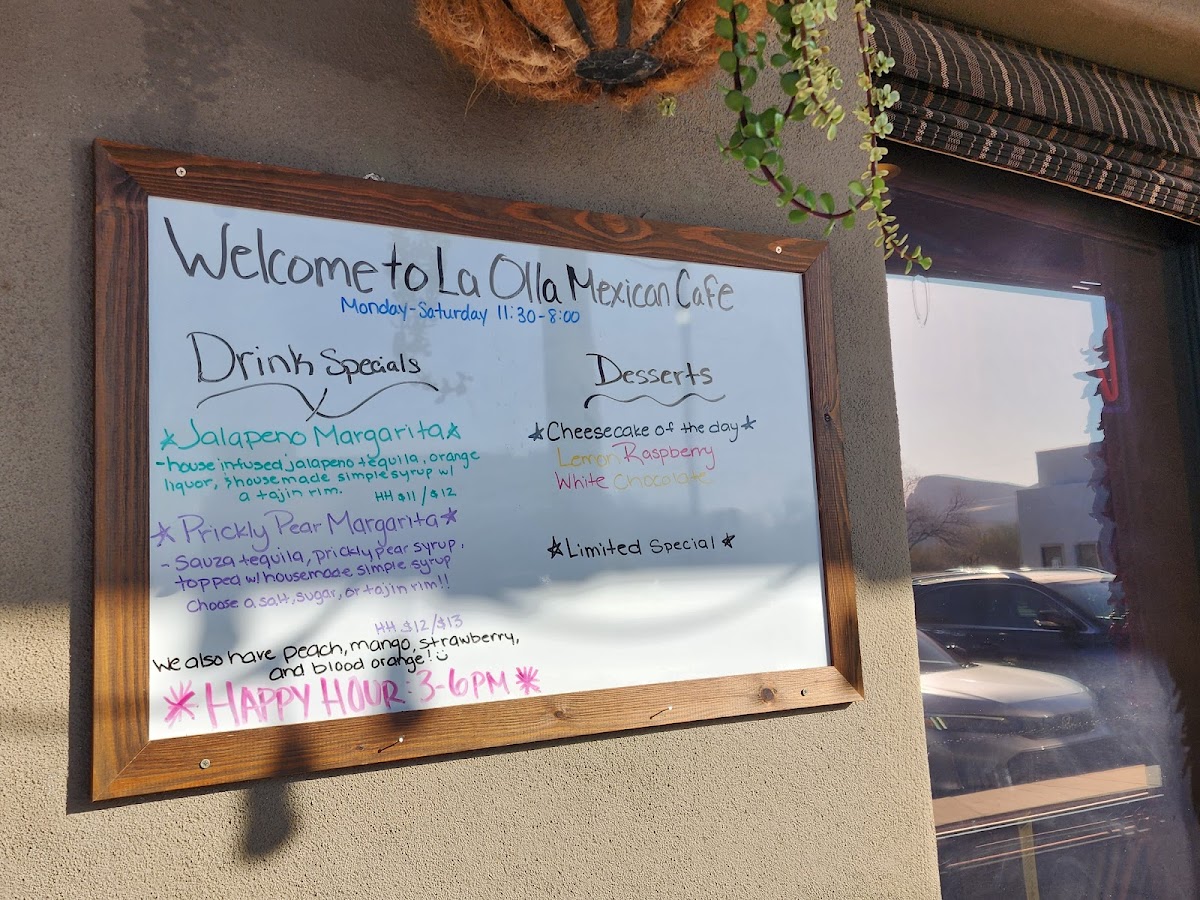 Welcome to La Olla Mexican Cafe
Monday-Saturday 11:30-8:00
Drink Specials
Jalapeno Margarita
-house infused jalapeno tequila, orange
liquor, & housemade simple syrup w/
a tajin rim. HH $11/$12
Prickly Pear Margarita
- Sauza tequila, prickly pear syrup,
topped w/ housemade simple syrup
Choose a salt, sugar, or tajin rim!!
HH $12/$13
We also have peach, mango, strawberry,
and blood orange!
HAPPY HOUR: 3-6PM
Desserts
Cheesecake of the day
Lemon Raspberry
White Chocolate
Limited Special